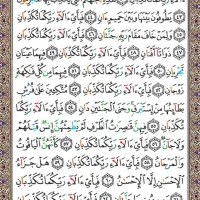 يَطُوفُونَ بَيْنَهَا وَبَيْنَ حَمِيمٍ ءَانٍ ٤٤ فَبِأَىِّ ءَالَآءِ رَبِّكُمَا تُكَذِّبَانِ ٤٥
وَلِمَنْ خَافَ مَقَامَ رَبِّهِۦ جَنَّتَانِ ٤٦ فَبِأَىِّ ءَالَآءِ رَبِّكُمَا تُكَذِّبَانِ
٤٧ ذَوَاتَآ أَفْنَانٍ ٤٨ فَبِأَىِّ ءَالَآءِ رَبِّكُمَا تُكَذِّبَانِ ٤٩ فِيهِمَا عَيْنَانِ
تَجْرِيَانِ ٥٠ فَبِأَىِّ ءَالَآءِ رَبِّكُمَا تُكَذِّبَانِ ٥١ فِيهِمَا مِن كُلِّ فَٰكِهَةٍ
زَوْجَانِ ٥٢ فَبِأَىِّ ءَالَآءِ رَبِّكُمَا تُكَذِّبَانِ ٥٣ مُتَّكِـِٔينَ عَلَىٰ فُرُشٍۭ
بَطَآئِنُهَا مِنْ إِسْتَبْرَقٍ وَجَنَى ٱلْجَنَّتَيْنِ دَانٍ ٥٤ فَبِأَىِّ ءَالَآءِ رَبِّكُمَا
تُكَذِّبَانِ ٥٥ فِيهِنَّ قَٰصِرَٰتُ ٱلطَّرْفِ لَمْ يَطْمِثْهُنَّ إِنسٌ قَبْلَهُمْ
وَلَا جَآنٌّ ٥٦ فَبِأَىِّ ءَالَآءِ رَبِّكُمَا تُكَذِّبَانِ ٥٧ كَأَنَّهُنَّ ٱلْيَاقُوتُ
وَٱلْمَرْجَانُ ٥٨ فَبِأَىِّ ءَالَآءِ رَبِّكُمَا تُكَذِّبَانِ ٥٩ هَلْ جَزَآءُ
ٱلْإِحْسَٰنِ إِلَّا ٱلْإِحْسَٰنُ ٦٠ فَبِأَىِّ ءَالَآءِ رَبِّكُمَا تُكَذِّبَانِ